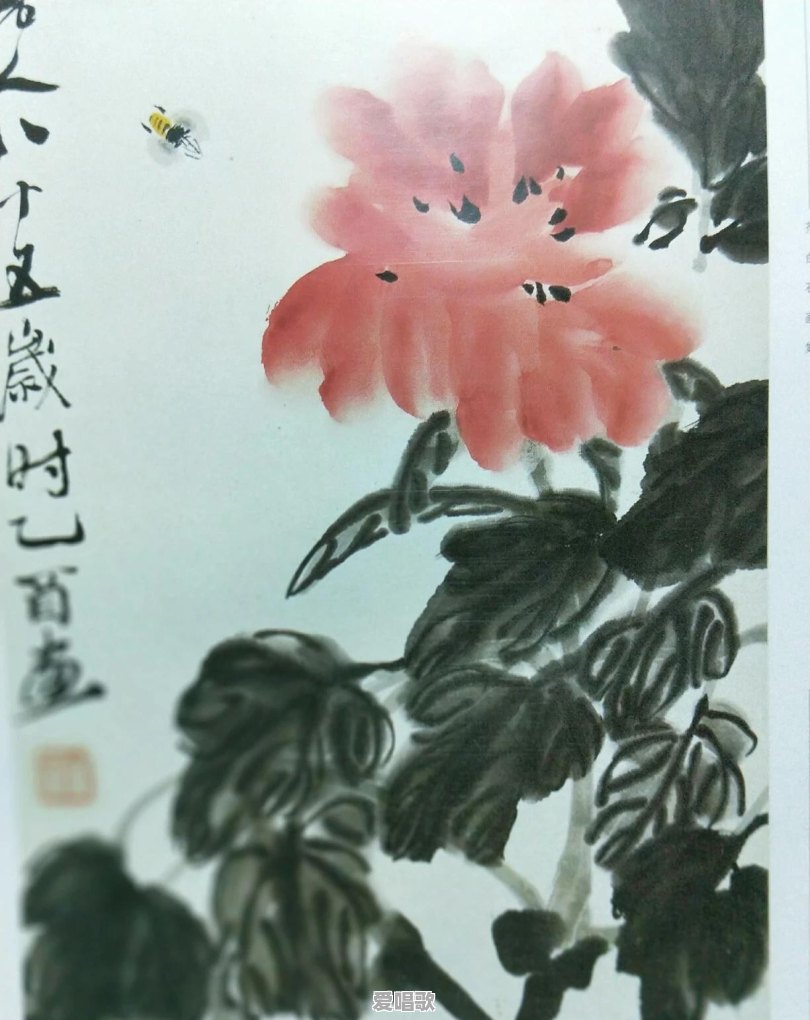 八十五歲时乙酉画
爱唱歌